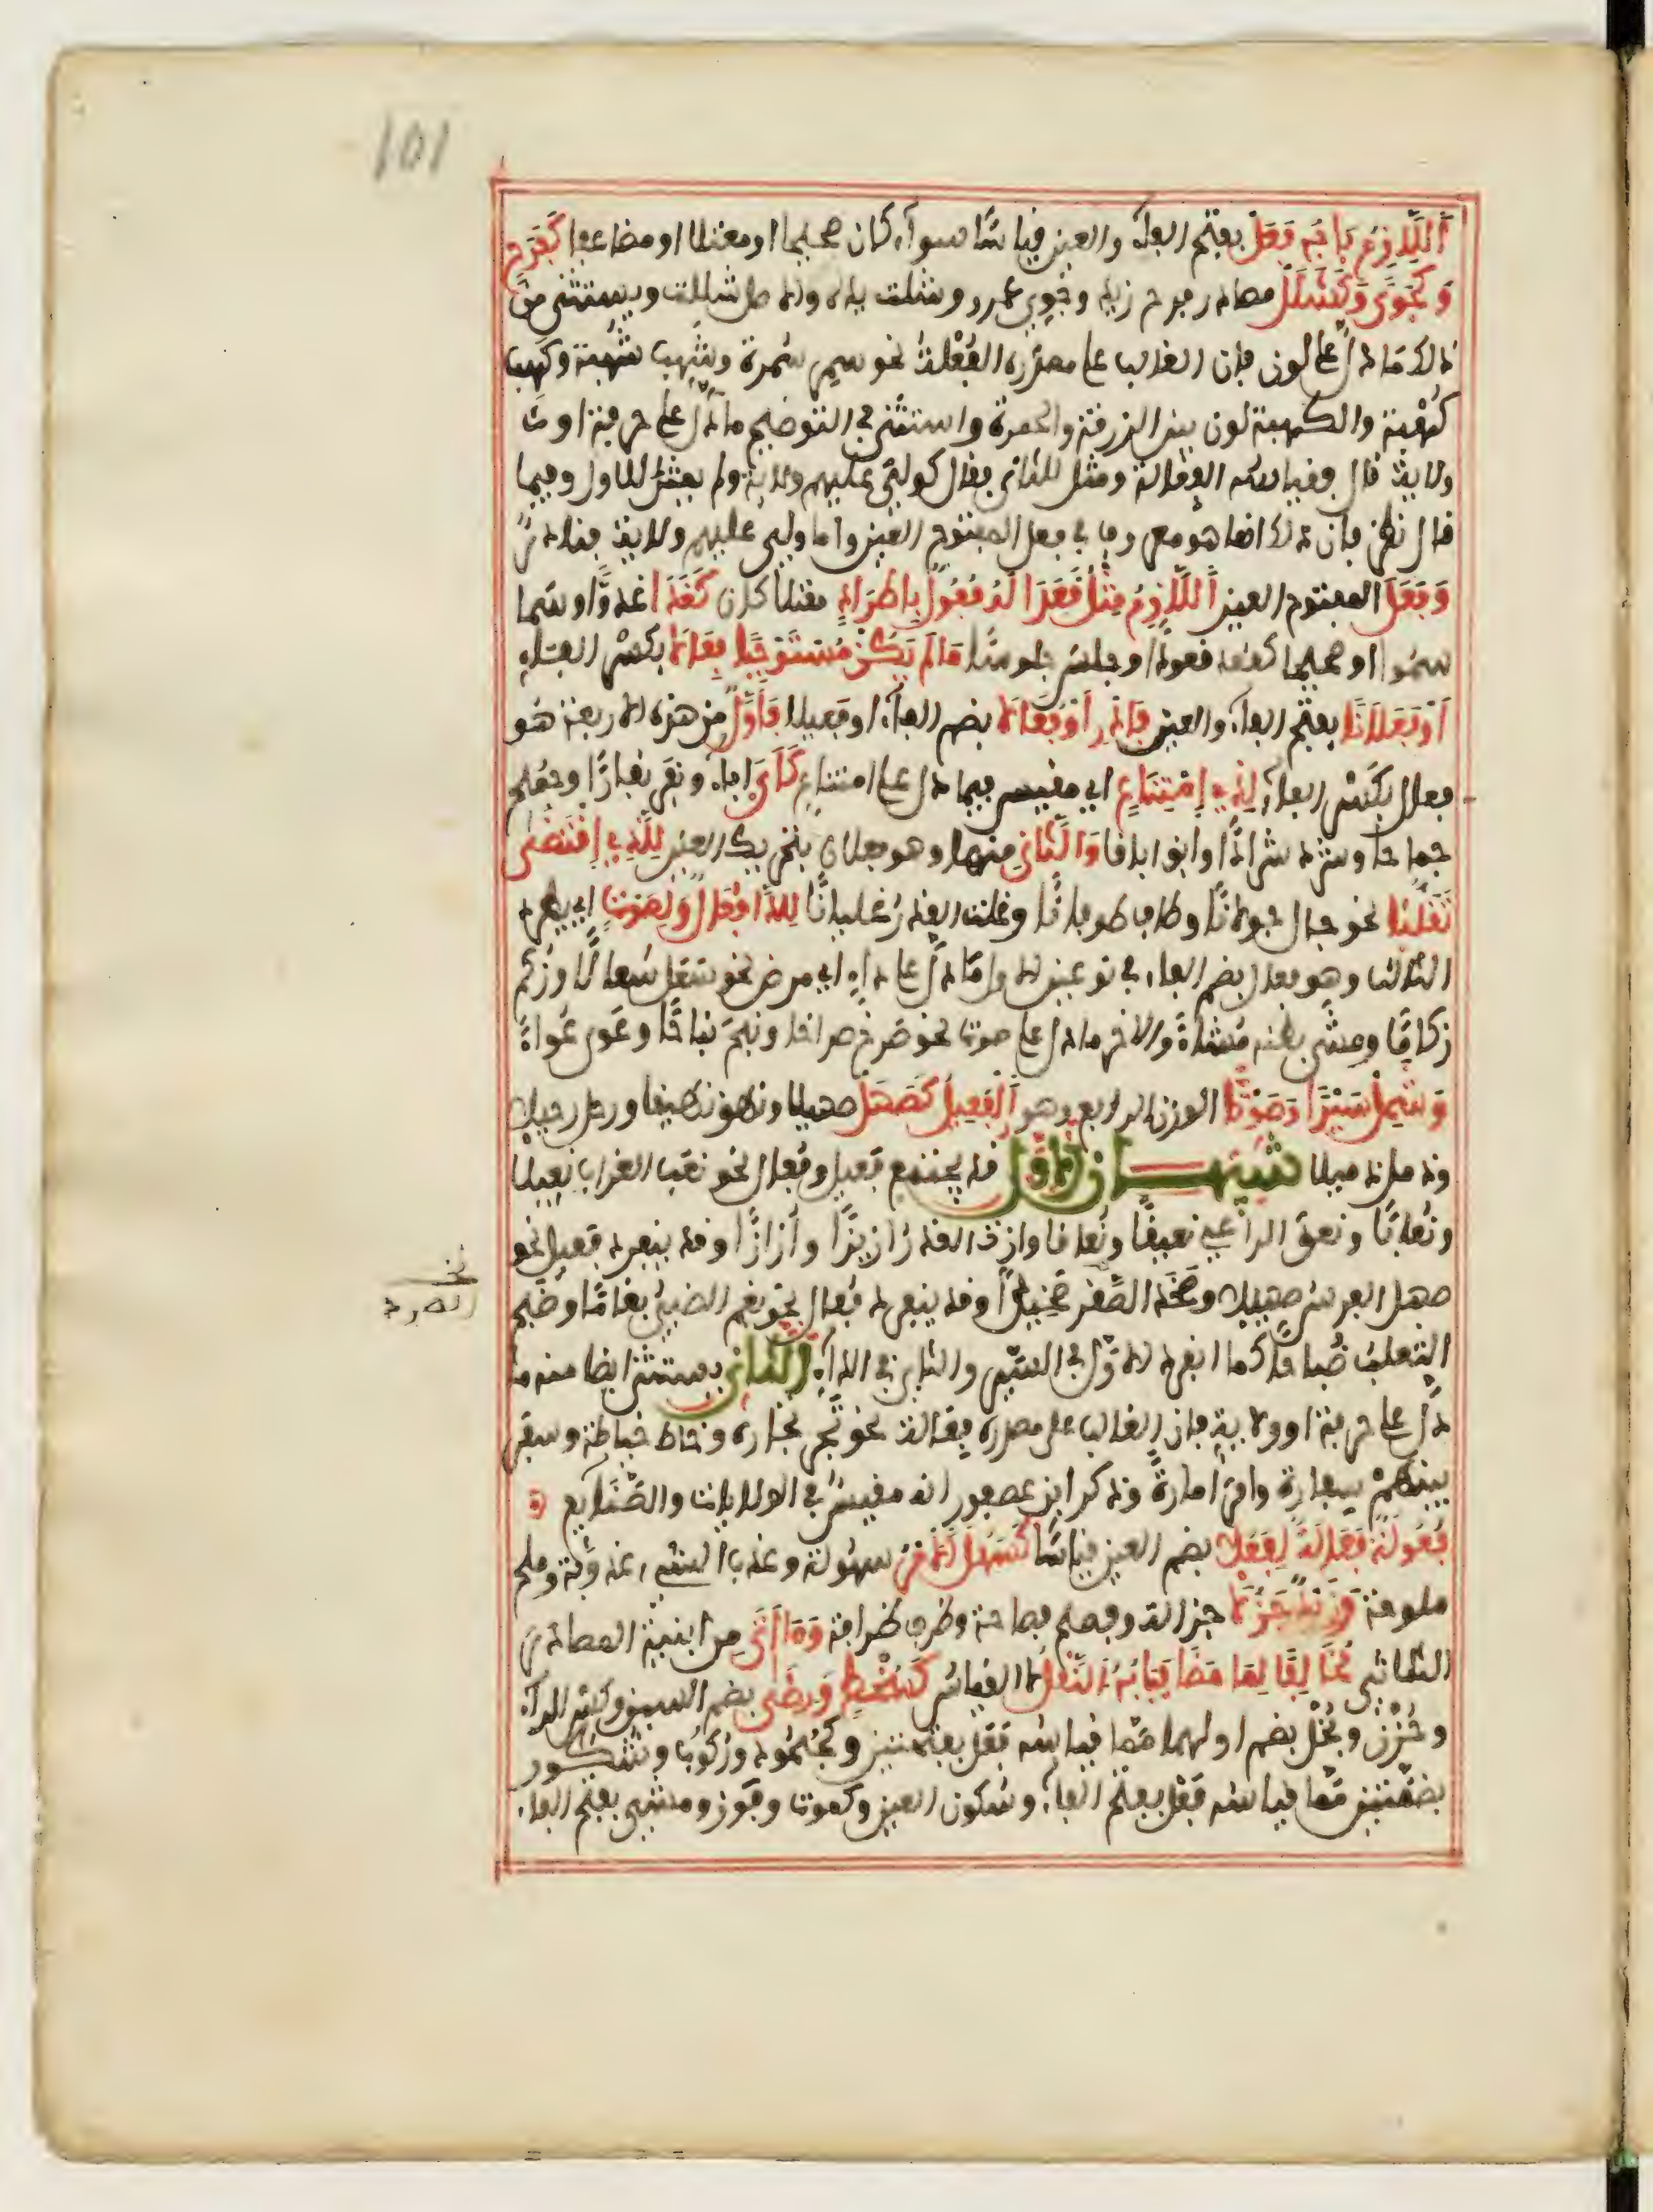 101
اَللَّازِمُ بَابُه فَعَلْ بفتح الفاء والعين قياسًا سواء كان صحيحا او معتلا او مضاعفا كَفَرَحٍ
وَكَجَوًى وَكَشَلَلْ مصادر فرح زيد وجوي عمرو وشلت يده والاصل شللت ويستثنى من
ذلك ما دل على لون فإن الغالب على مصدره الفُعْلة نحو سمر سُمرة وشهب شُهبة وكهب
كُهْبة والكهبة لون بين الزرقة والحمرة واستثنى في التوضيح ما دل على حرفة او
ولاية قال فقياسه الفعالة ومثل للثاني فقال كولي عليهم ولاية ولم يمثل للاول وفيما
قال نظر فإن ذلك انما هو معروف في فعل المفتوح العين واما ولي عليهم ولاية فنادر
وَفَعَلَ المفتوح العين اَللَّازِمُ مِثْلُ قَعَدَا لَهُ فُعُولٌ بِاطِّرَادٍ معتلا كان كَغَدَا غدوًّا وسما
سموا او صحيحا كقعد قعودا وجلس جلوسًا مَا لَمْ يَكُنْ مُسْتَوْجِبًا فِعَالَا بكسر الفاء
اَوْ فَعَلَانًا بفتح الفاء والعين فَادْرِ اَوْ فُعَالَا بضم الفاء او فعيلا فَأَوَّلٌ من هذه الاربعة هو
فعال بكسر الفاء لِذِي اِمْتِنَاعٍ اي مقيس فيما دل على امتناع كَأَبَى اباء ونفر نفارًا وجمح
جماحا وشرد شرادًا وابق اباقا وَالثَّانِ منها وهو فعلان بتحريك العين لِلَّذِي اِقْتَضَى
تَقَلُّبَا نحو جال جولانًا وطاف طوفانًا وغلت القدر غليانًا لِلدَّا فُعَالٌ وَلِصَوْتٍ اي يطرد
الثالث وهو فعال بضم الفاء في نوعين الاول ما دل على داء اي مرض نحو سعل سُعالًا وزكم
زكامًا ومشى بطنه مُشاءً والاخر ما دل على صوت نحو صرخ صراخا ونبح نباحًا وعوى عُواءً
وَشَمِلْ سَيْرًا وَصَوْتًا الوزن الرابع وهو اَلْفَعِيلُ كَصَهَلْ صهيلا ونهق نهيقا ورحل رحيلا
وذمل ذميلا تنبيهان الاول قد يجتمع فعيل وفعال نحو نعب الغراب نعيبا
ونُعابًا ونعق الراعي نعيقًا ونُعاقا وازت القدر ازيزًا وأزازًا وقد ينفرد فعيل نحو
صهل الفرس صهيلا وصخد الصُّرد صخيدًا وقد ينفرد فُعال نحو بغم الظبي بغامًا وضبح
نخـ
الصرد
الثعلب ضُباحا كما انفرد الاول في السير والثاني في الداء الثاني يستثنى ايضا منه ما
دل على حرفة او ولاية فإن الغالب على مصدره فِعالة نحو تجر تجارة وخاط خياطة وسفر
بينهمْ سِفارة وامر امارة وذكر ابن عصفور انه مقيس في الولايات والصَّنايع
فُعُولَةٌ فَعَالَةٌ لِفَعُلَا بضم العين قياسًا كَسَهُلَ الْأَمْرُ سهولة وعذب الشيء عذوبة وملح
ملوحة وَزَيْدٌ جَزُلَا جزالة وفصح فصاحة وظرف ظرافة وَمَا أَتَى من ابنية المصادر
الثلاثي مُخَالِفًا لِمَا مَضَى فَبَابُهُ اَلنَّقْلُ لا القياس كَسُخْطٍ وَرِضًى بضم السين وكسر الراء
وحُزْن وبُخْل بضم اولهما مما قياسه فعَل بفتحتين وكجُحُود ورُكُوب وشُكُور
بضمتين مما قياسه فَعْل بفتح الفاء وسكون العين وكموت وفَوْز ومشي بفتح الفاء